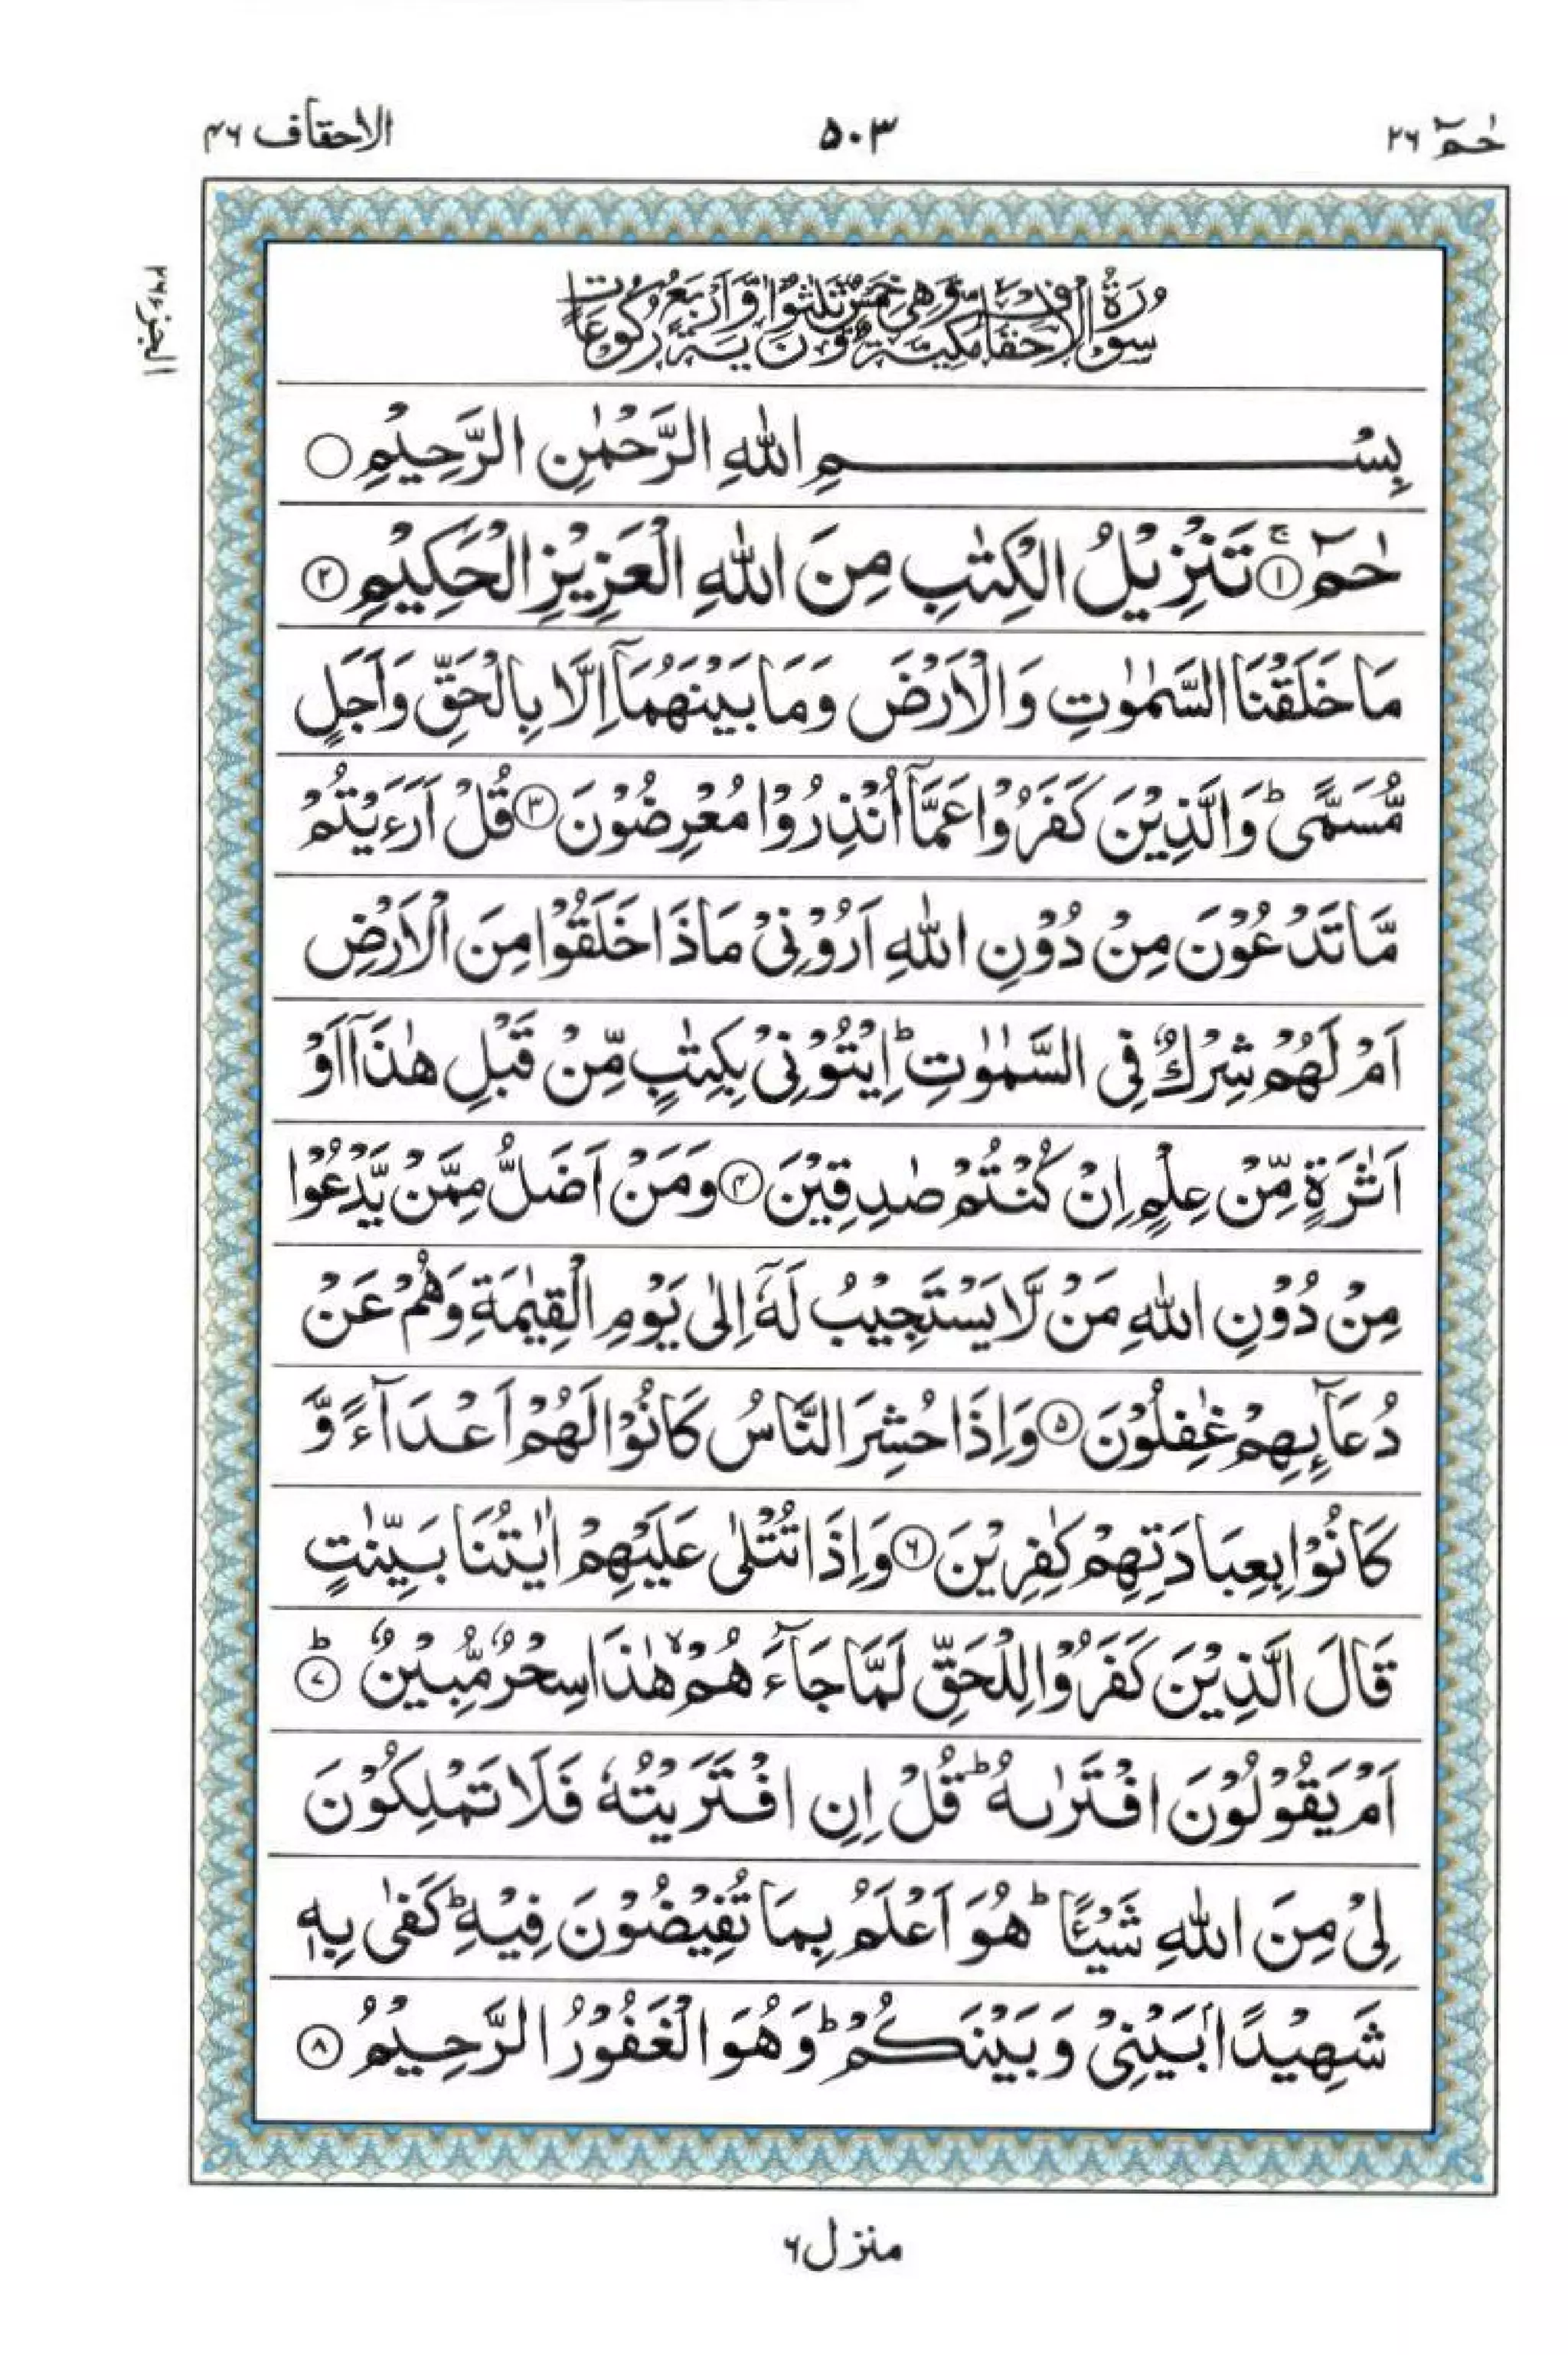 حٰمٓ ٢٦
٥٠٣
الاحقاف ٤٦
الجزء ٢٦
سُوْرَةُ الْاَحْقَافِ مَكِّيَّةٌ وَّهِيَ خَمْسٌ وَّثَلٰثُوْنَ اٰيَةً وَّاَرْبَعُ رُكُوْعَاتٍ
بِسْمِ اللّٰهِ الرَّحْمٰنِ الرَّحِيْمِ ○
حٰمٓ ۚ ﴿١﴾ تَنْزِيْلُ الْكِتٰبِ مِنَ اللّٰهِ الْعَزِيْزِ الْحَكِيْمِ ﴿٢﴾
مَا خَلَقْنَا السَّمٰوٰتِ وَالْاَرْضَ وَمَا بَيْنَهُمَاۤ اِلَّا بِالْحَقِّ وَاَجَلٍ
مُّسَمًّى ؕ وَالَّذِيْنَ كَفَرُوْا عَمَّاۤ اُنْذِرُوْا مُعْرِضُوْنَ ﴿٣﴾ قُلْ اَرَءَيْتُمْ
مَّا تَدْعُوْنَ مِنْ دُوْنِ اللّٰهِ اَرُوْنِيْ مَاذَا خَلَقُوْا مِنَ الْاَرْضِ
اَمْ لَهُمْ شِرْكٌ فِى السَّمٰوٰتِ ؕ اِيْتُوْنِيْ بِكِتٰبٍ مِّنْ قَبْلِ هٰذَاۤ اَوْ
اَثٰرَةٍ مِّنْ عِلْمٍ اِنْ كُنْتُمْ صٰدِقِيْنَ ﴿٤﴾ وَمَنْ اَضَلُّ مِمَّنْ يَّدْعُوْا
مِنْ دُوْنِ اللّٰهِ مَنْ لَّا يَسْتَجِيْبُ لَهٗۤ اِلٰى يَوْمِ الْقِيٰمَةِ وَهُمْ عَنْ
دُعَآئِهِمْ غٰفِلُوْنَ ﴿٥﴾ وَاِذَا حُشِرَ النَّاسُ كَانُوْا لَهُمْ اَعْدَآءً وَّ
كَانُوْا بِعِبَادَتِهِمْ كٰفِرِيْنَ ﴿٦﴾ وَاِذَا تُتْلٰى عَلَيْهِمْ اٰيٰتُنَا بَيِّنٰتٍ
قَالَ الَّذِيْنَ كَفَرُوْا لِلْحَقِّ لَمَّا جَآءَهُمْ ۙ هٰذَا سِحْرٌ مُّبِيْنٌ ؕ ﴿٧﴾
اَمْ يَقُوْلُوْنَ افْتَرٰىهُ ؕ قُلْ اِنِ افْتَرَيْتُهٗ فَلَا تَمْلِكُوْنَ
لِيْ مِنَ اللّٰهِ شَيْئًا ؕ هُوَ اَعْلَمُ بِمَا تُفِيْضُوْنَ فِيْهِ ؕ كَفٰى بِهٖ
شَهِيْدًۢا بَيْنِيْ وَبَيْنَكُمْ ؕ وَهُوَ الْغَفُوْرُ الرَّحِيْمُ ﴿٨﴾
منزل ٦